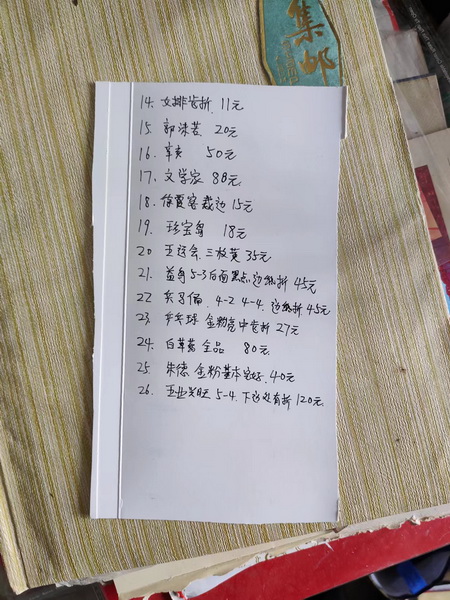 集邮
14. 女排齿折 11元
15. 郭沫若 20元
16. 辛亥 50元
17. 文学家 80元
18. 徐霞客 裁边 15元
19. 珍宝岛 18元
20 五运会 三枚黄 35元
21. 益鸟 5-3后面黑点 边纸折 45元
22 兵马俑. 4-2 4-4. 边纸折 45元
23. 乒乓球 金粉亮 中 折 27元
24. 白 全品 80元.
25 朱德 金粉基本完好. 40元
26. 五业兴旺 5-4. 下边处有折 120元.